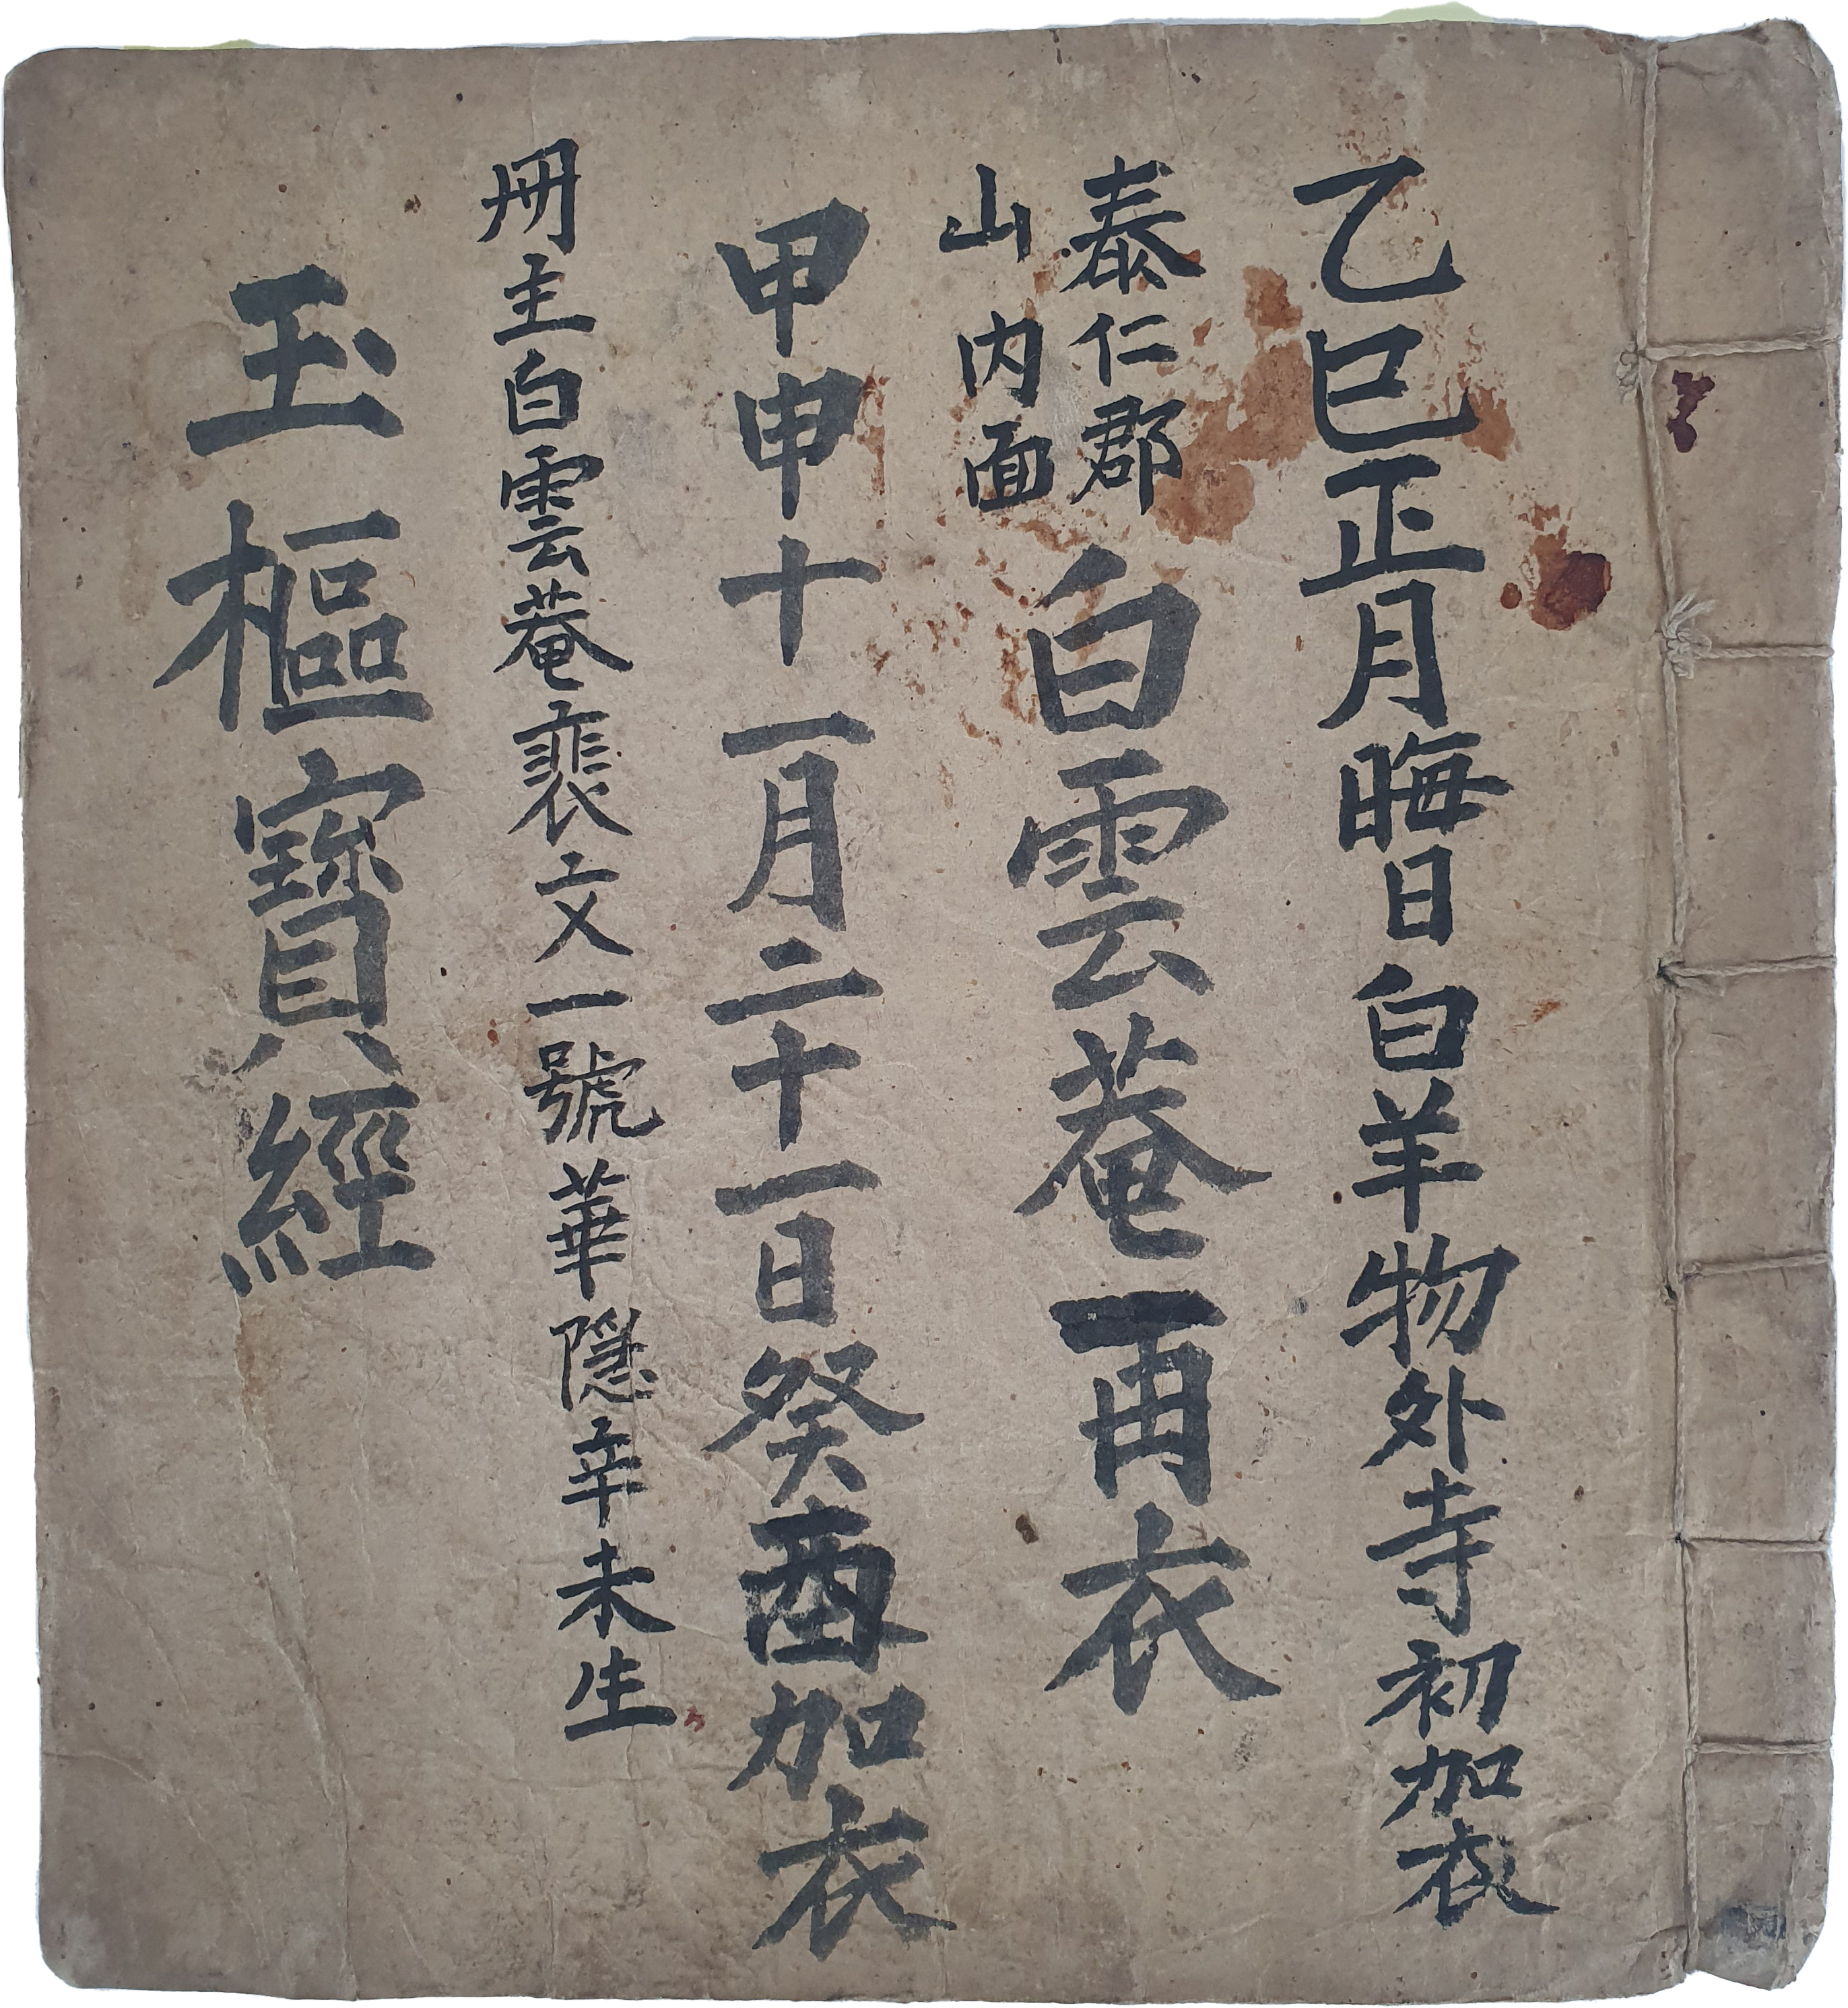 乙巳正月晦日白羊物外寺初加衣
泰仁郡
山内面
白雲菴再衣
甲申十一月二十一日癸酉加衣
冊主白雲菴裵文一號華隱辛未生
玉樞寶經